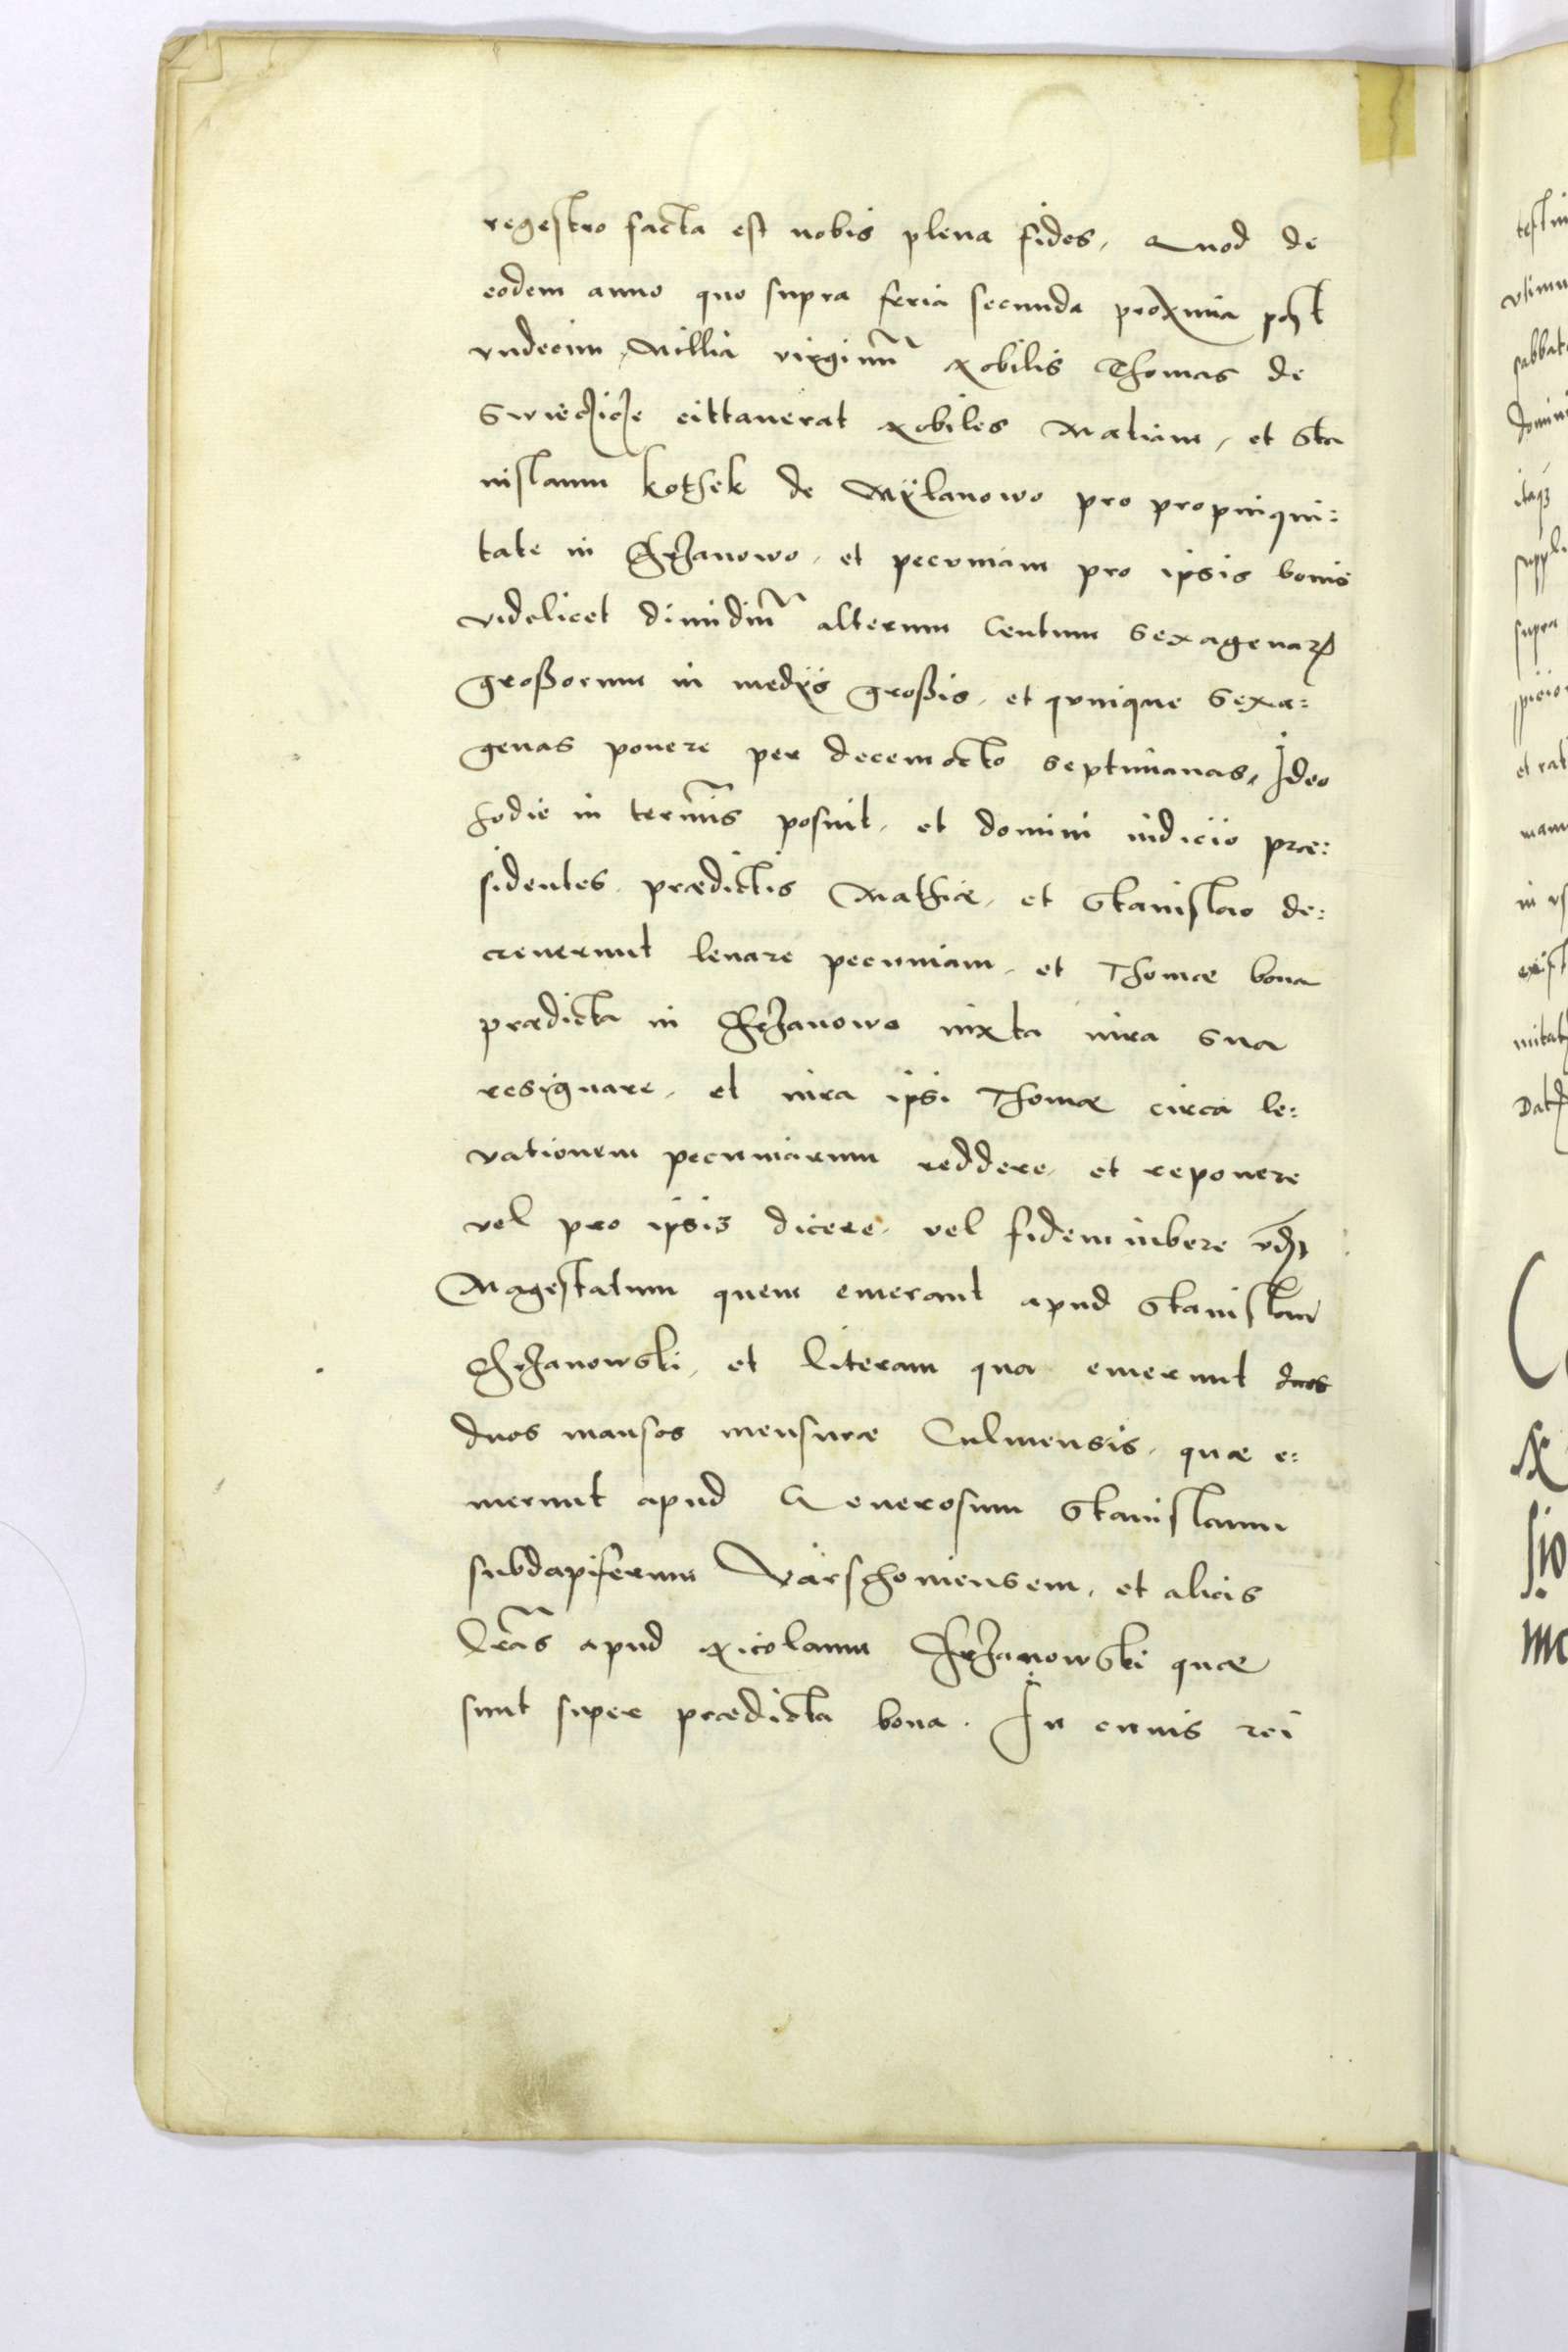 regestro facta est nobis plena fides, Quod de
eodem anno quo supra feria secunda proxima post
vndecim Millia virginu᷈ Nobilis Thomas de
Swieczicze cittauerat Nobiles Matiam, et Sta
nislaum Kothek de Mÿlanowo pro propinqui:
tate in Chrzanowo, et pecuniam pro ipsis bonis
videlicet dimidiu᷈ alterum Centum Sexagenarꝝ
großorum in medÿs großis, et quinque Sexa:
genas ponere per decemocto Septimanas, Ideo
hodie in termi᷈s posuit, et domini iudicio præ:
sidentes prædictis Mathiæ, et Stanislao de:
creuerunt leuare pecuniam, et Thomæ bona
prædicta in Chrzanowo iuxta iura sua
resignare, et iura ipsi Thomæ circa le:
vationem pecuniarum reddere, et reponere
vel pro ipsis dicere, vel fidem iubere
Magestatum quem emerant apud Stanislau
Chrzanowski, et literam qua emerunt duos
duos mansos mensuræ Culmensis, quæ e:
merunt apud Generosum Stanislaum
subdapiferum Varschouiensem, et alicis
lr᷈as apud Nicolaum Chrzanowski quæ
sunt super prædicta bona. In cuius rei
testim
vsimu
sabbat
domini
itaqꝫ
suppli
supra
et rat
mam
in vs
exist
mitat
Dat